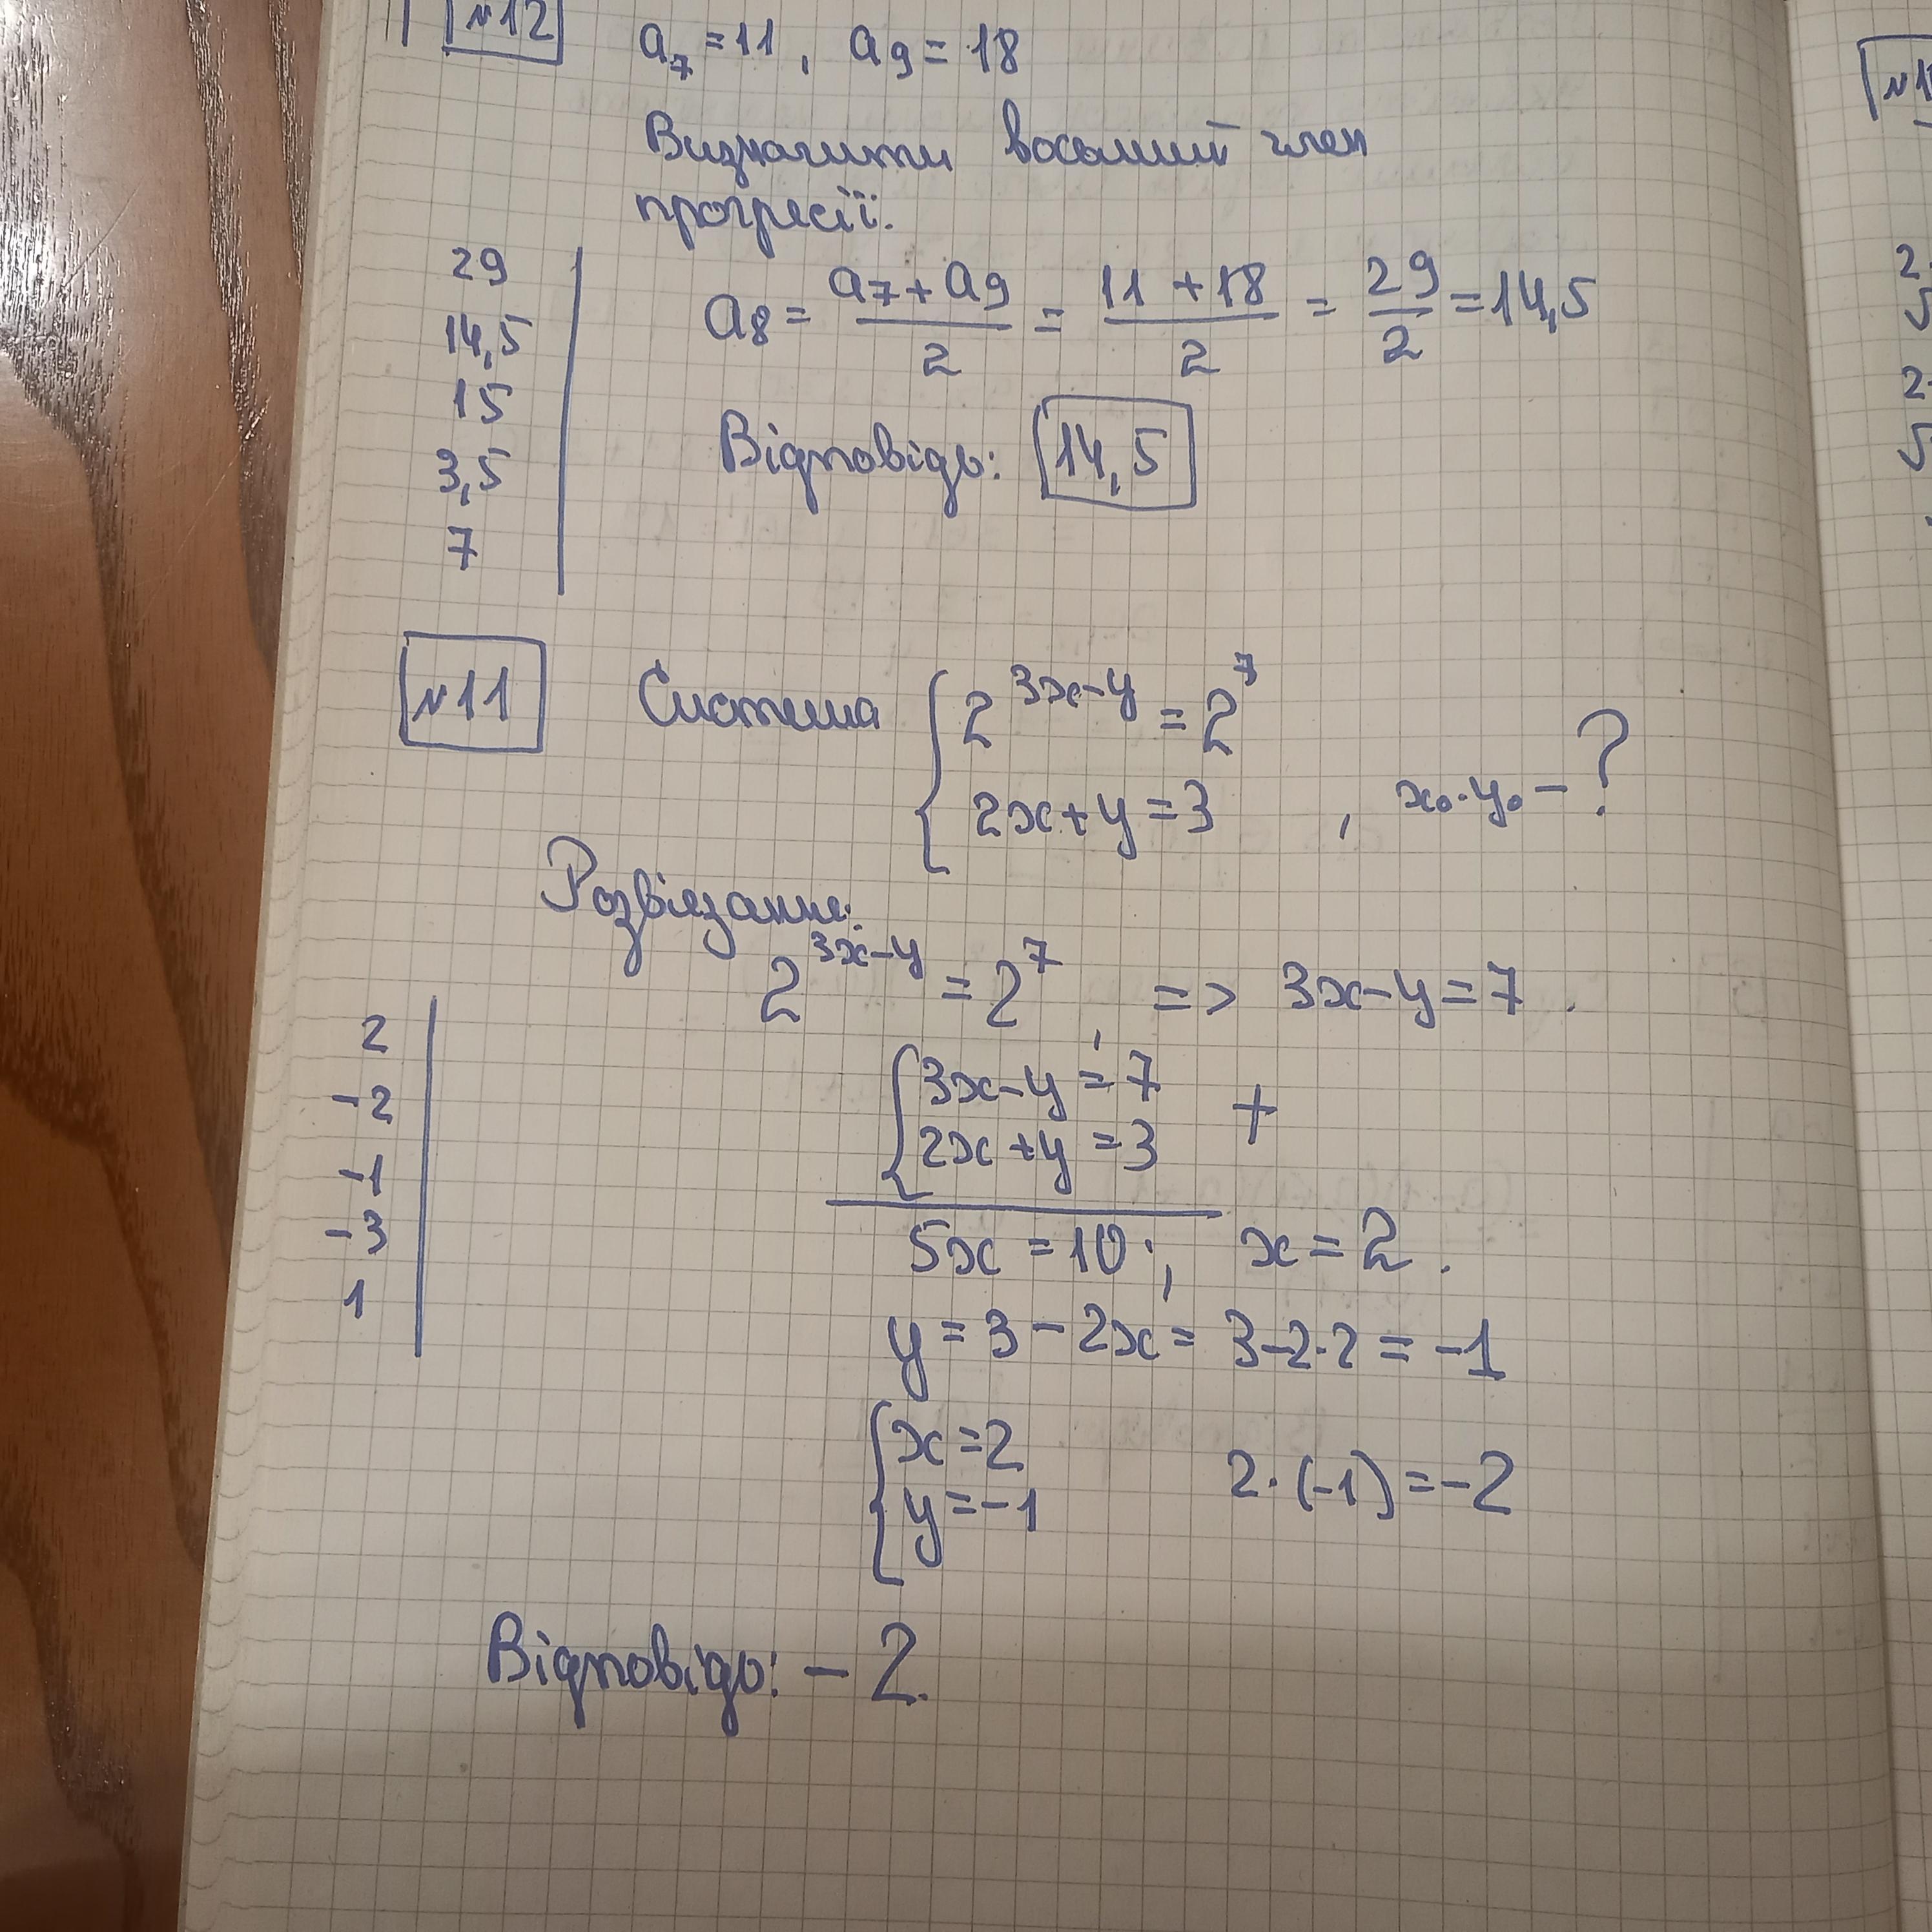 №12
a₇ = 11, a₉ = 18
Визначити восьмий член
прогресії.
29
14,5
15
3,5
7
a₈ = (a₇ + a₉)/2 = (11 + 18)/2 = 29/2 = 14,5
Відповідь: 14,5
№11
Система { 2^(3x-y) = 2^7
2x + y = 3 , x₀·y₀ - ?
Розв'язання:
2^(3x-y) = 2^7 => 3x - y = 7.
2
-2
-1
-3
1
{ 3x - y = 7
2x + y = 3 +
5x = 10; x = 2.
y = 3 - 2x = 3 - 2·2 = -1
{ x = 2
y = -1
2·(-1) = -2
Відповідь: -2.
№1
2
5
2
5